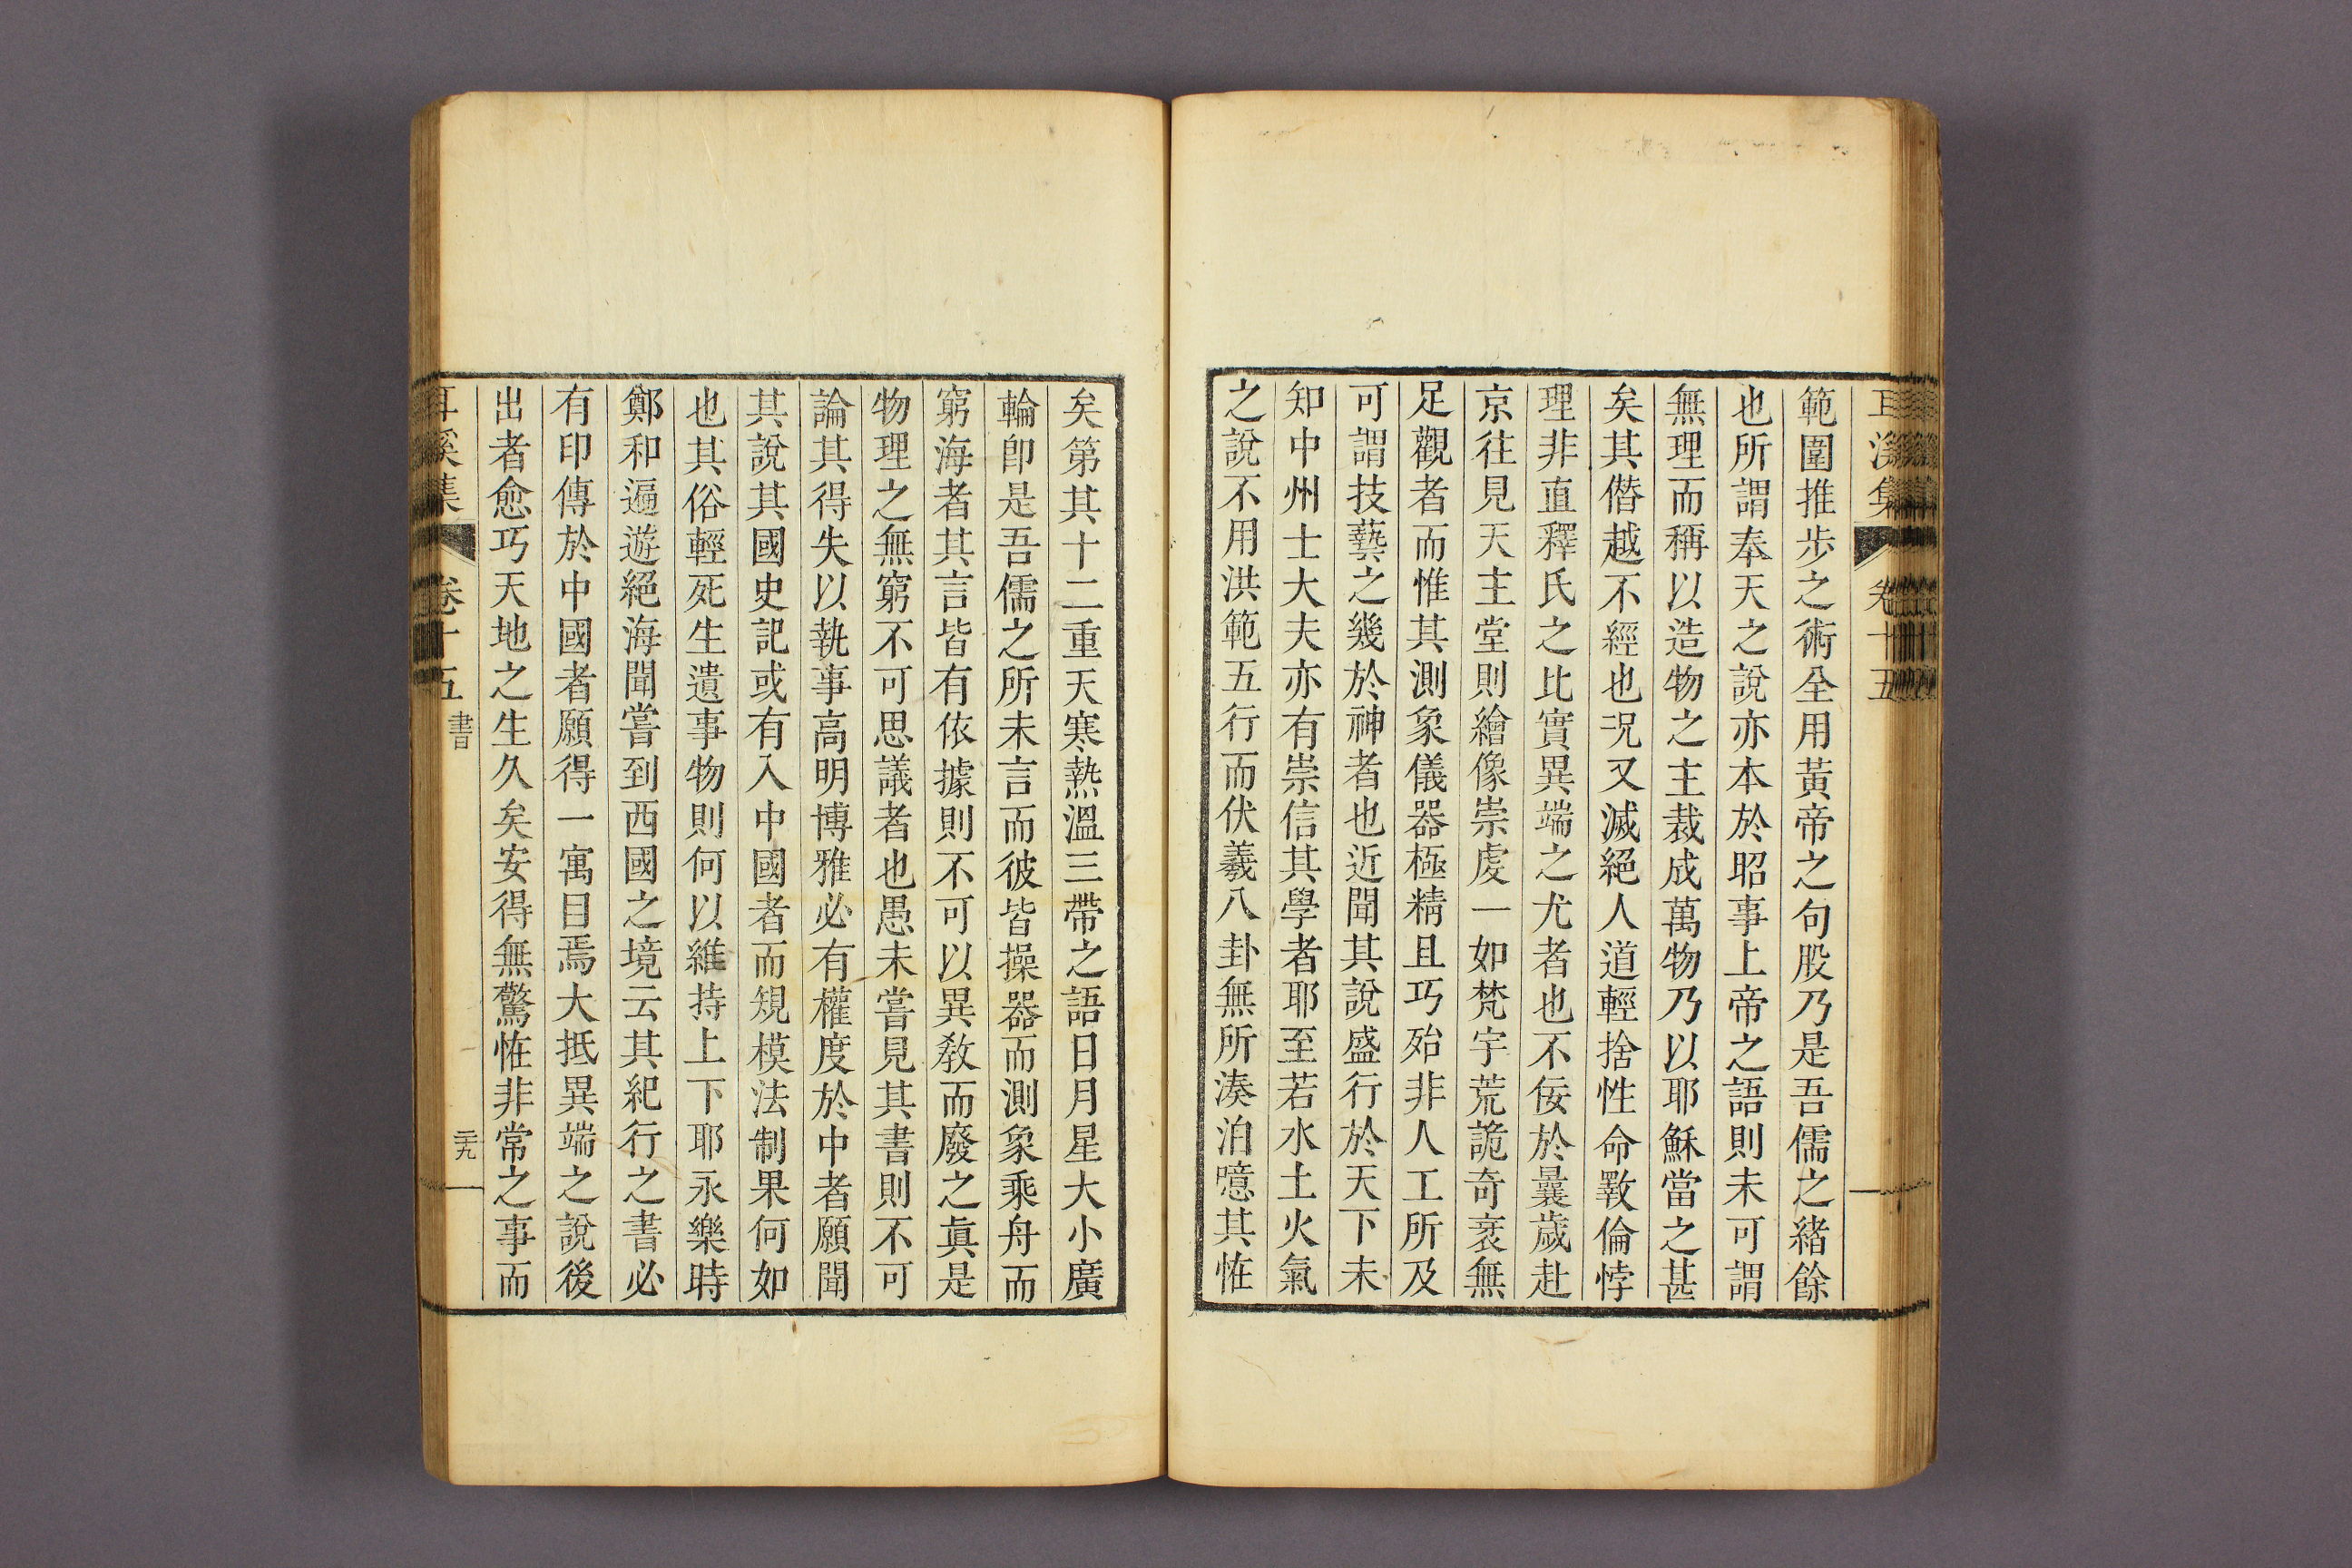 耳溪集 卷十五
範圍推步之術全用黃帝之句股乃是吾儒之緖餘
也所謂奉天之說亦本於昭事上帝之語則未可謂
無理而稱以造物之主裁成萬物乃以耶穌當之甚
矣其僭越不經也况又滅絕人道輕捨性命斁倫悖
理非直釋氏之比實異端之尤者也不佞於曩歲赴
京往見天主堂則繪像崇虔一如梵宇荒詭奇衺無
足觀者而惟其測象儀器極精且巧殆非人工所及
可謂技藝之幾於神者也近聞其說盛行於天下未
知中州士大夫亦有崇信其學者耶至若水土火氣
之說不用洪範五行而伏羲八卦無所湊泊噫其恠
矣第其十二重天寒熱溫三帶之語日月星大小廣
輪卽是吾儒之所未言而彼皆操器而測象乘舟而
窮海者其言皆有依據則不可以異敎而廢之眞是
物理之無窮不可思議者也愚未嘗見其書則不可
論其得失以執事高明博雅必有權度於中者願聞
其說其國史記或有入中國者而規模法制果何如
也其俗輕死生遺事物則何以維持上下耶永樂時
鄭和遍遊絕海聞嘗到西國之境云其紀行之書必
有印傳於中國者願得一寓目焉大抵異端之說後
出者愈巧天地之生久矣安得無驚恠非常之事而
耳溪集 卷十五 書 二十九